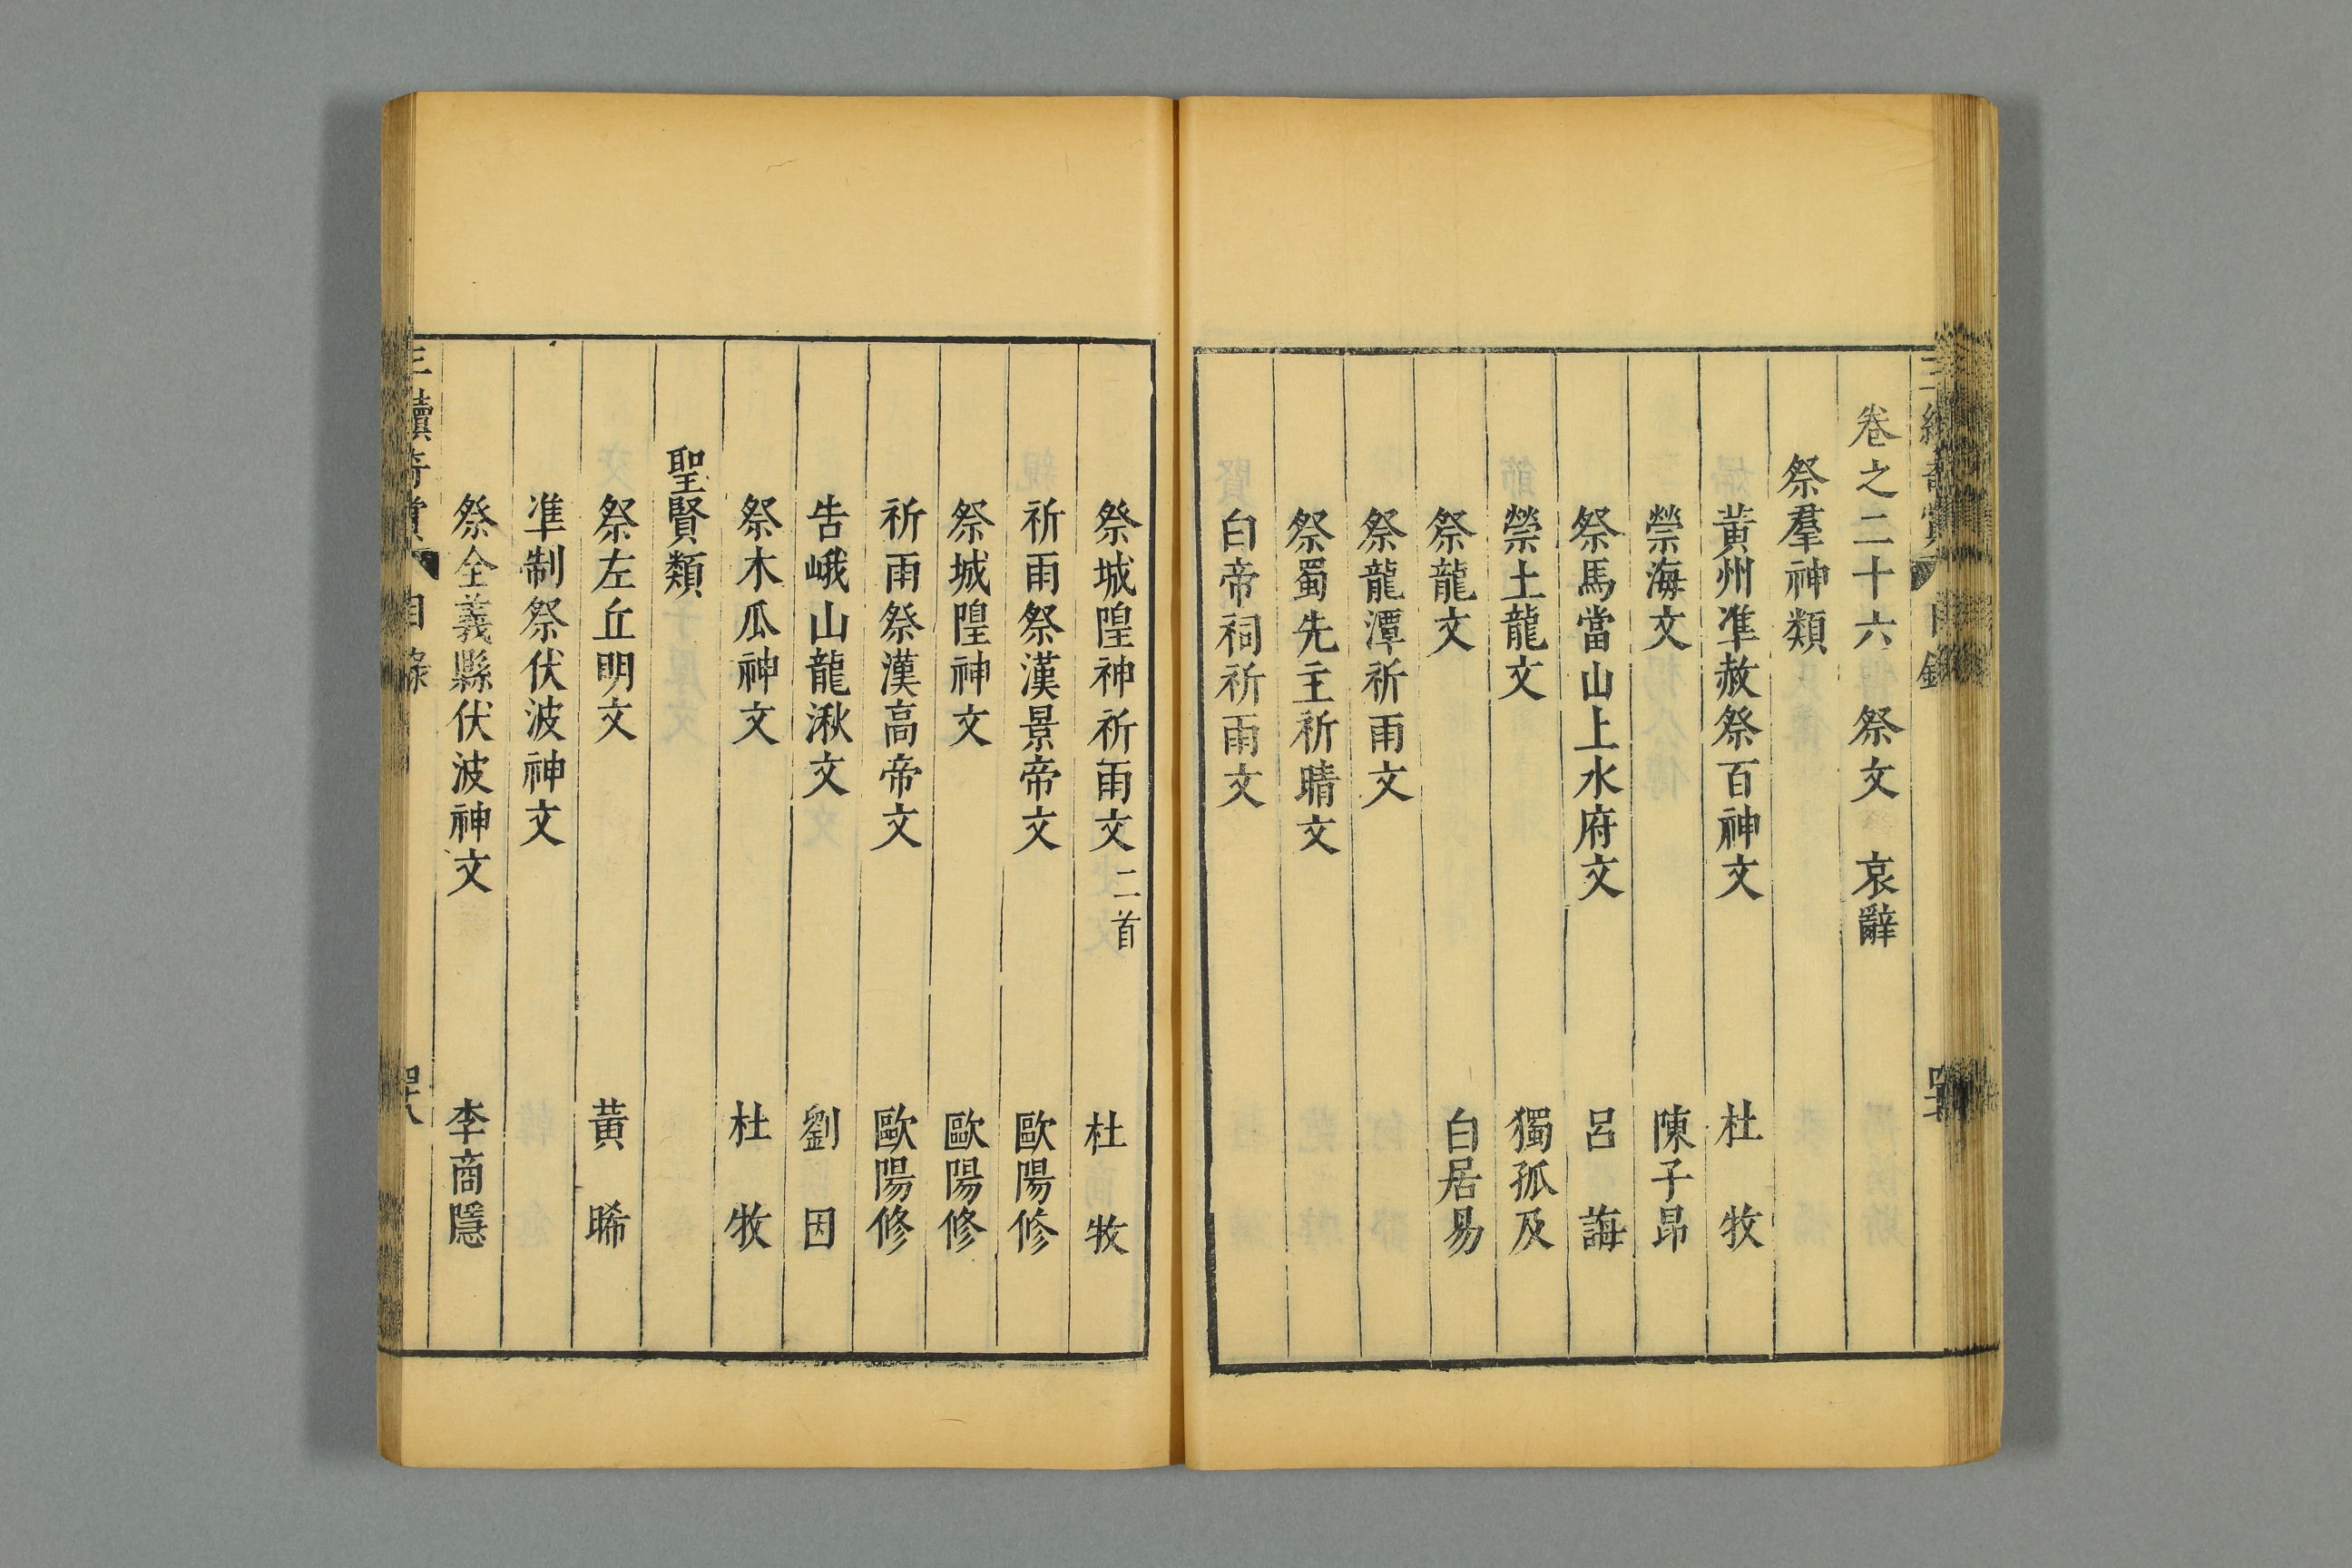 卷之二十六　祭文　哀辭
祭羣神類
黃州準赦祭百神文　杜牧
禜海文　陳子昂
祭馬當山上水府文　呂誨
禜土龍文　獨孤及
祭龍文　白居易
祭龍潭祈雨文
祭蜀先主祈晴文
白帝祠祈雨文
祭城隍神祈雨文二首　杜牧
祈雨祭漢景帝文　歐陽修
祭城隍神文　歐陽修
祈雨祭漢高帝文　歐陽修
告峨山龍湫文　劉因
祭木瓜神文　杜牧
聖賢類
祭左丘明文　黃晞
準制祭伏波神文
祭全義縣伏波神文　李商隱
三續奇賞　目錄